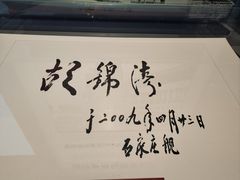 胡锦涛
于二〇〇九年四月廿三日
石家庄舰